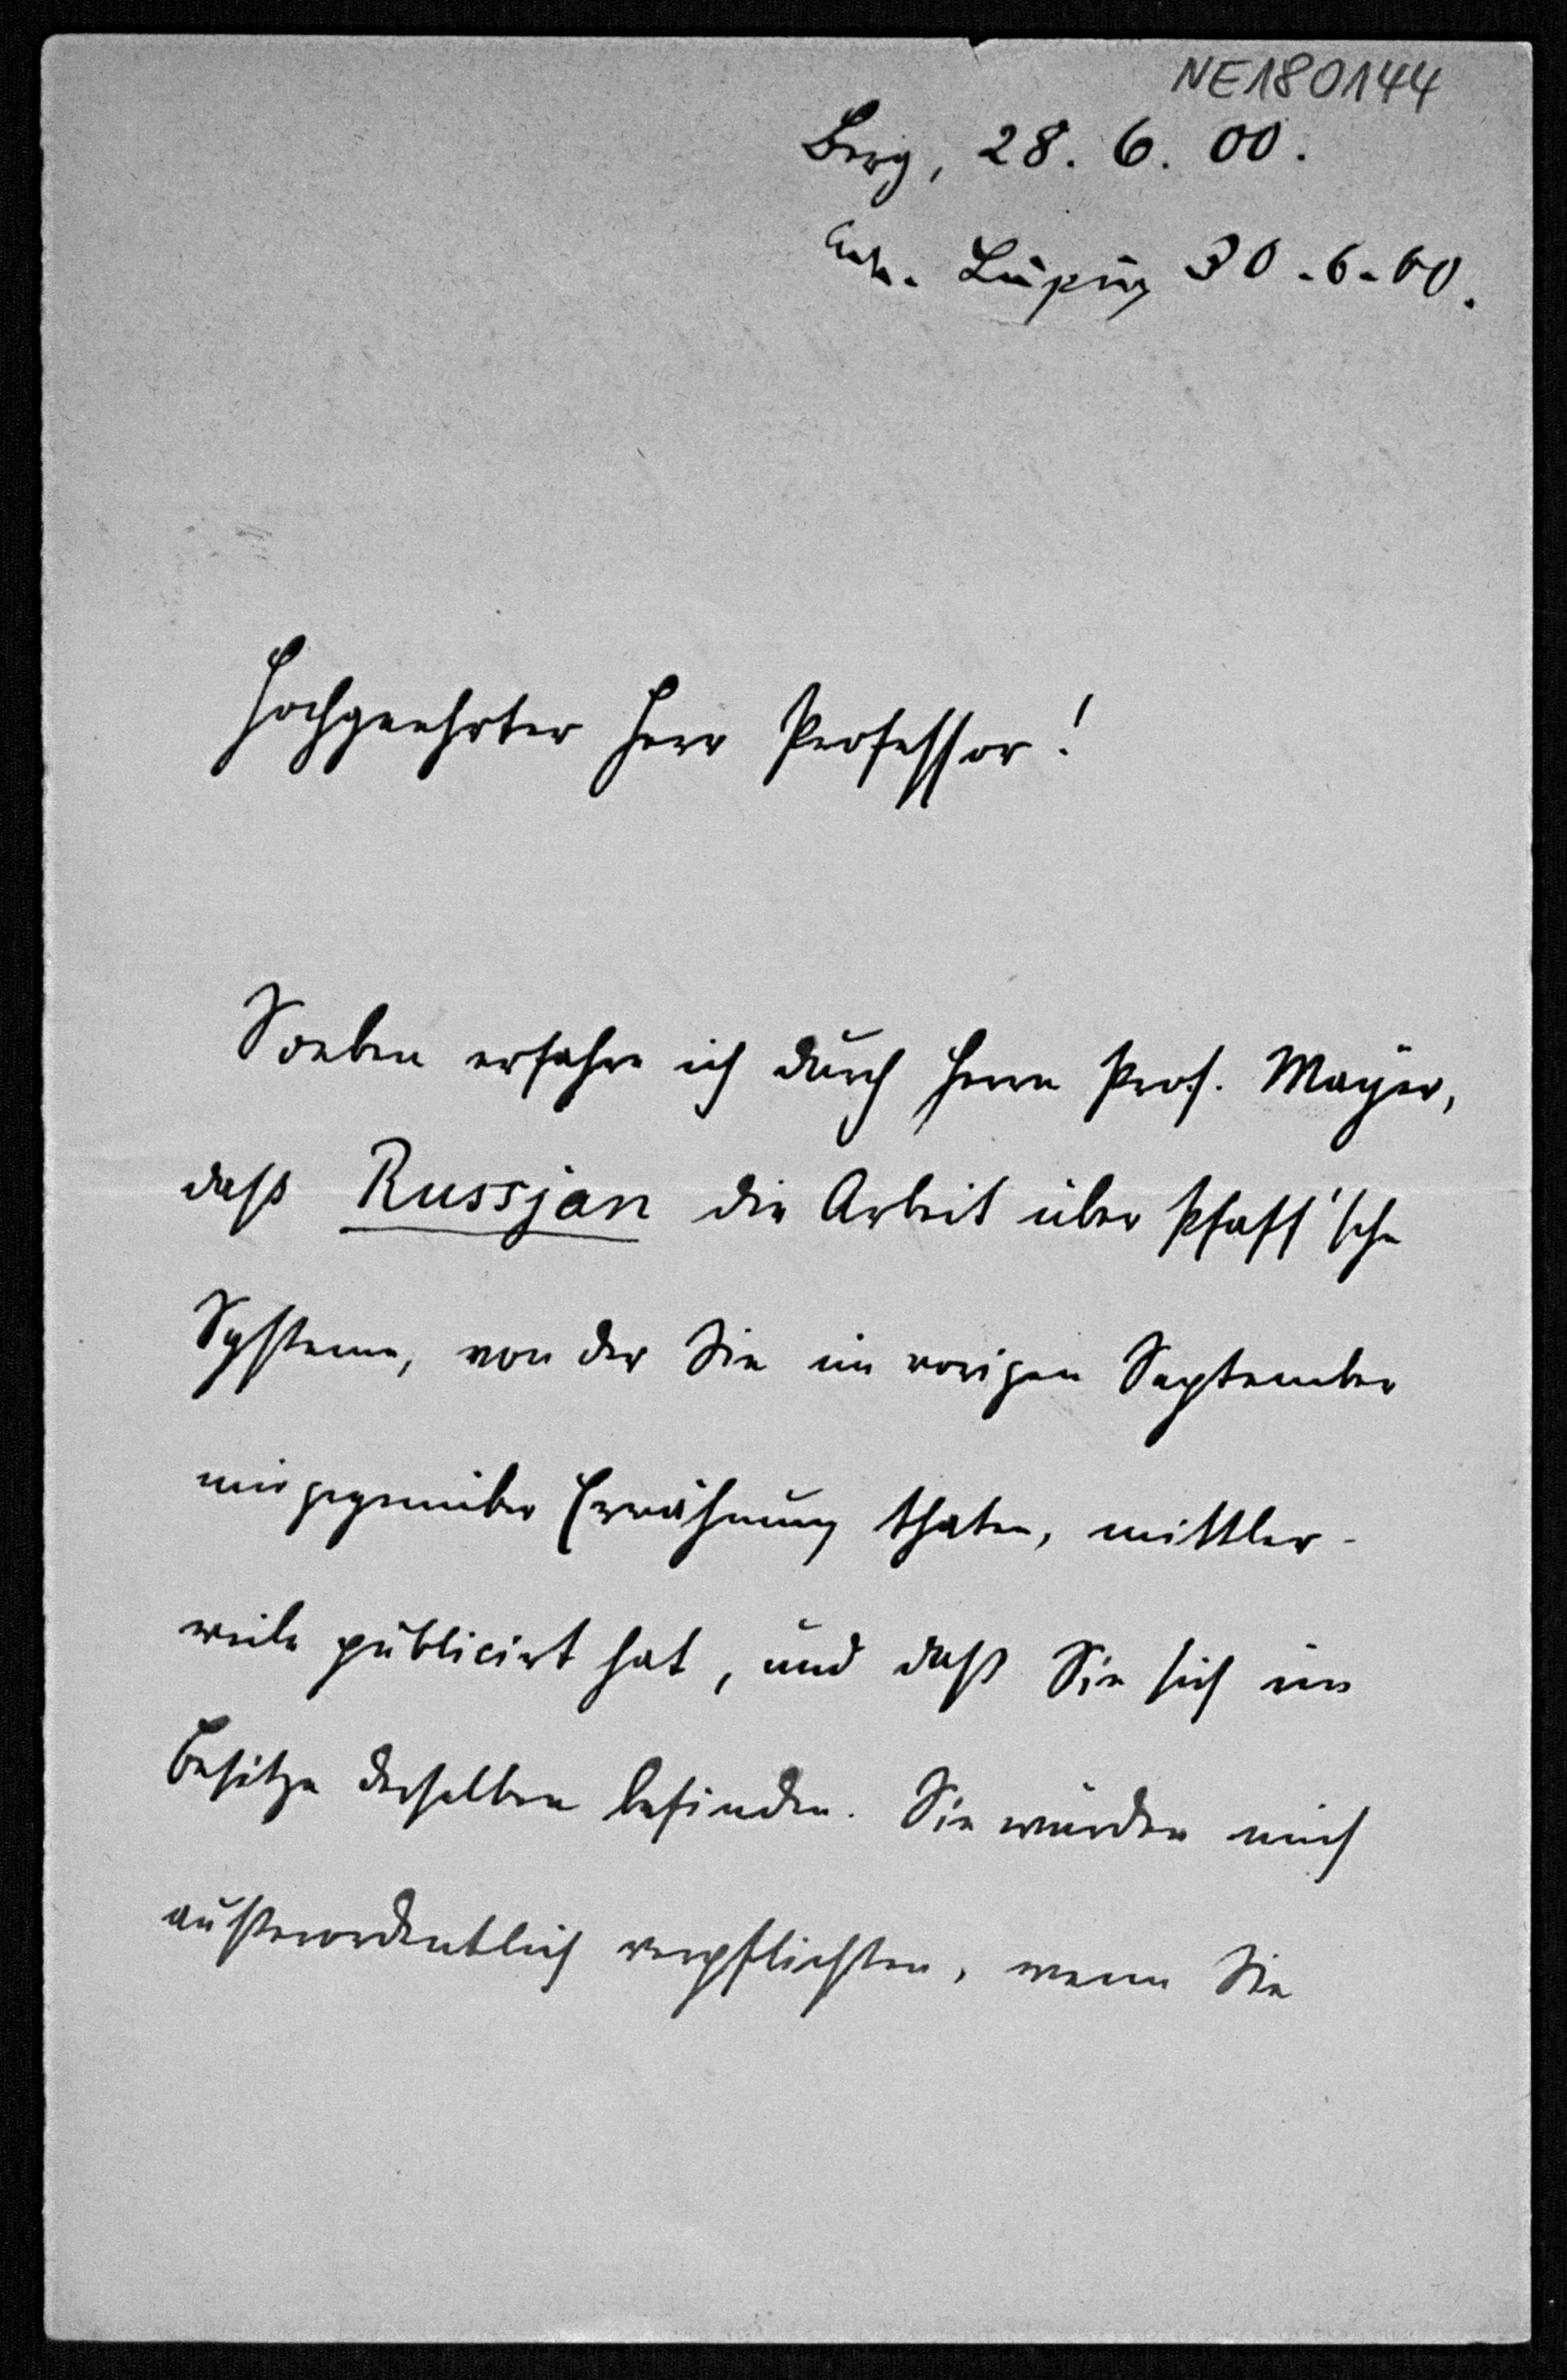 NE180144
Berg, 28. 6. 00.
Leipzig 30.6.00.
Hochgeehrter Herr Professor!
Soeben erfahre ich durch Herrn Prof. Mayer,
daß Russjan die Arbeit über Pfaff'sche
Systeme, von der Sie im vorigen September
mir gegenüber Erwähnung thaten, mittler-
weile publicirt hat, und daß Sie sich im
Besitze derselben befinden. Sie würden mich
außerordentlich verpflichten, wenn Sie